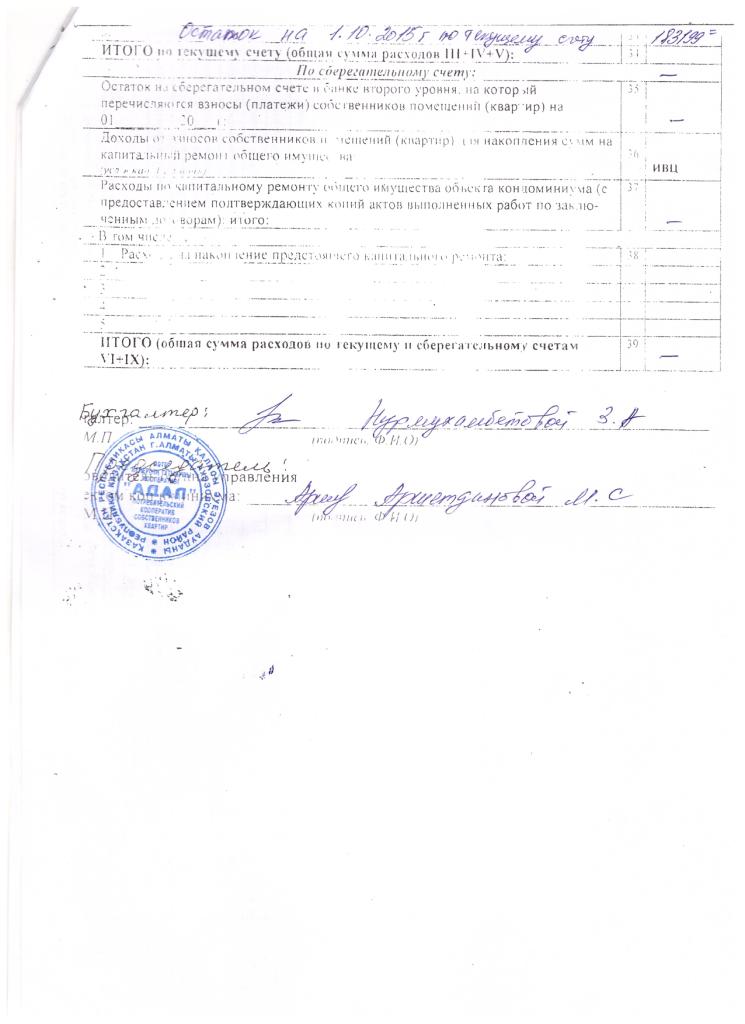 Остаток на 1.10.2015г по текущему счету 183199=
ИТОГО по текущему счету (общая сумма расходов III+IV+V): 34
По сберегательному счету: —
Остаток на сберегательном счете в банке второго уровня, на который 35
перечисляются взносы (платежи) собственников помещений (квартир) на
01 20 г: —
Доходы от взносов собственников помещений (квартир) для накопления сумм на
капитальный ремонт общего имущества 36
ИВЦ
Расходы по капитальному ремонту общего имущества объекта кондоминиума (с 37
предоставлением подтверждающих копий актов выполненных работ по заклю-
ченным договорам): итого: —
В том числе
1. Расходы на накопление предстоящего капитального ремонта: 38
2
3
4
5
ИТОГО (общая сумма расходов по текущему и сберегательному счетам 39
VI+IX): —
Бухгалтер: Нурмухамбетовой З.А
М.П (подпись, Ф.И.О)
управления
Аршетдиновой М.С
(подпись, Ф.И.О)
ҚАЗАҚСТАН РЕСПУБЛИКАСЫ АЛМАТЫ ҚАЛАСЫ ӘУЕЗОВ АУДАНЫ
РЕСПУБЛИКА КАЗАХСТАН Г.АЛМАТЫ АУЭЗОВСКИЙ РАЙОН
АДАЛ
ПОТРЕБИТЕЛЬСКИЙ
КООПЕРАТИВ
СОБСТВЕННИКОВ
КВАРТИР